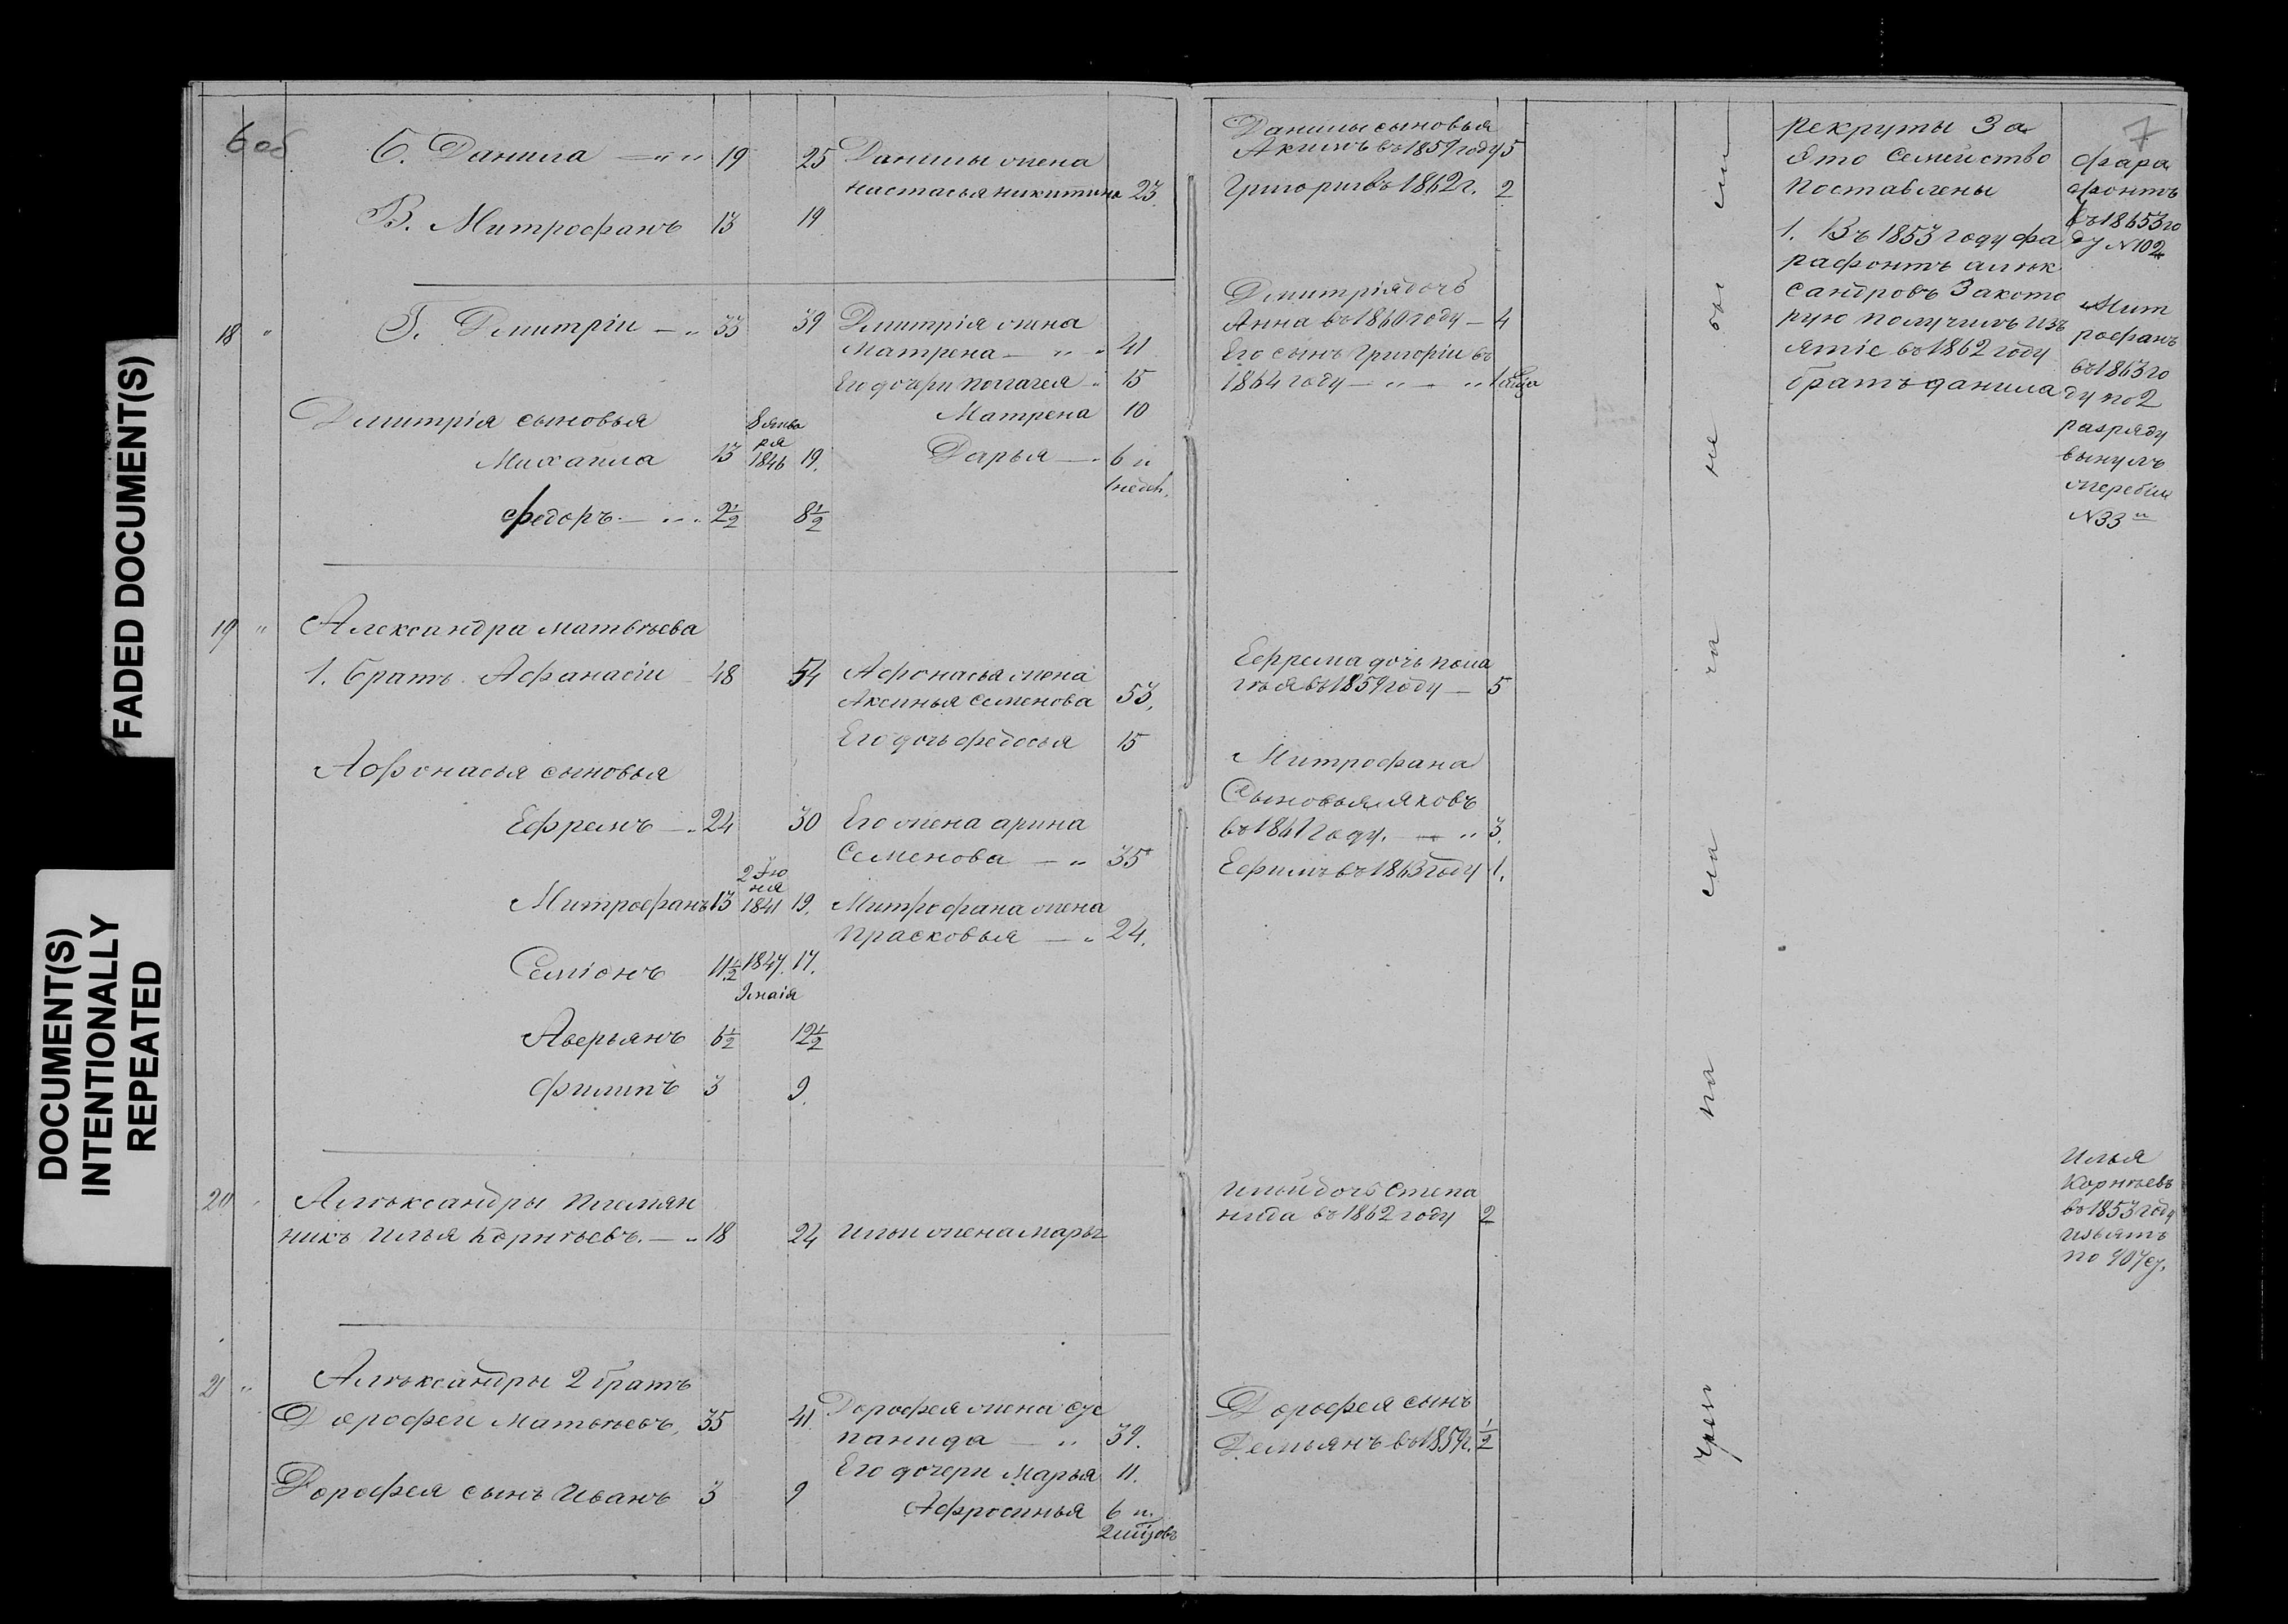 FADED DOCUMENT(S)
DOCUMENT(S)
INTENTIONALLY
REPEATED
6 об
Б. Данила 19 25 Данилы жена
настасья никитина 23
В. Митрофанъ 13 19
18 Г. Дмитріи 33 39 Дмитрія жена
Матрена 41
Его дочери пелагея 15
Дмитрія сыновья Матрена 10
8 янва
ря
Михаила 13 1846 19. Дарья 6 и
1 недѣ.
федоръ 2½ 8½
19 Александра матвѣева
1. братъ Афанасіи 48 54 Афонасья жена
Аксинья Семенова 53.
Его дочь федосья 15
Афонасья сыновья
Ефремъ 24 30 Его жена арина
Семенова 35
2 Ію
ня
Митрофанъ 13 1841 19. Митрофана жена
прасковья 24.
Семіонъ 11½ 1847. 17.
9 маія
Аверьянъ 6½ 12½
филипъ 3 9.
20 Алѣксандры племян
никъ илья корнѣевъ. 18 24 ильи жена марья
21 Алѣксандры 2 братъ
Дорофеи матвѣевъ, 35 41 Дорофея жена сус
панида 39.
Его дочери марья 11.
Дорофея сынъ иванъ 3 9
Афросинья 6 и
2 мѣсяцовъ
7
Данилы сыновья
Акимъ въ 1859 году 5
Григории въ 1862 г. 2
Дмитрія дочь
Анна въ 1860 году 4
Его сынъ григоріи въ
1864 году 1
Ефрема дочь пела
гѣя въ 1859 году 5
Митрофана
Сыновья яковъ
въ 1861 году. 3.
Ефимъ въ 1863 году 1.
ильи дочь степа
нида въ 1862 году 2
Дорофея сынъ
Демьянъ въ 1859 г. ½
чрез на ча ла не бы ли
рекруты За
Это Семейство
поставлены
1. Въ 1853 году фа
рафонтъ алѣк
сандровъ За кото
рую получилъ изъ
ятіе въ 1862 году
братъ данила
фара
фонтъ
въ 1853 го
ду N 102
Мит
рофанъ
въ 1863 го
ду по 2
разряду
вынулъ
жеребіи
N 33
илья
Корнѣевъ
въ 1853 году
изъятъ
по 907 ст.